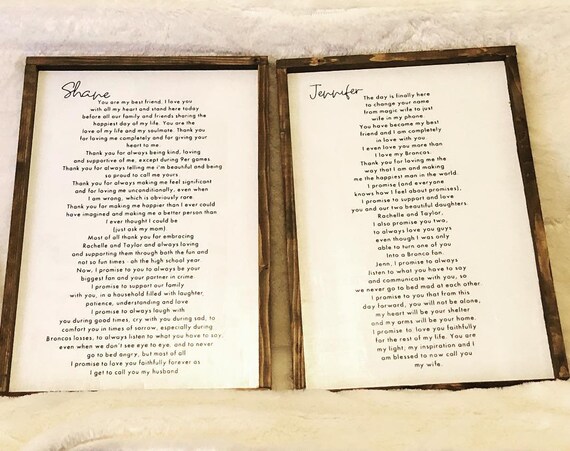 Shane
You are my best friend. I love you
with all my heart and stand here today
before all our family and friends sharing the
happiest day of my life. You are the
love of my life and my soulmate. Thank you
for loving me completely and for giving your
heart to me.
Thank you for always being kind, loving
and supportive of me, except during 9er games.
Thank you for always telling me i'm beautiful and being
so proud to call me yours
Thank you for always making me feel significant
and for loving me unconditionally, even when
I am wrong, which is obviously rare.
Thank you for making me happier than I ever could
have imagined and making me a better person than
I ever thought I could be
(just ask my mom).
Most of all thank you for embracing
Rachelle and Taylor and always loving
and supporting them through both the fun and
not so fun times - oh the high school year.
Now, I promise to you to always be your
biggest fan and your partner in crime
I promise to support our family
with you, in a household filled with laughter,
patience, understanding and love
I promise to always laugh with
you during good times, cry with you during sad, to
comfort you in times of sorrow, especially during
Broncos losses, to always listen to what you have to say,
even when we don't see eye to eye, and to never
go to bed angry, but most of all
I promise to love you faithfully forever as
I get to call you my husband
Jennifer
The day is finally here
to change your name
from magic wife to just
wife in my phone
You have become my best
friend and I am completely
in love with you
I even love you more than
I love my Broncos.
Thank you for loving me the
way that I am and making
me the happiest man in the world.
I promise (and everyone
knows how I feel about promises),
I promise to support and love
you and our two beautiful daughters.
Rachelle and Taylor,
I also promise you two,
to always love you guys
even though I was only
able to turn one of you
Into a Bronco fan.
Jenn, I promise to always
listen to what you have to say
and communicate with you, so
we never go to bed mad at each other.
I promise to you that from this
day forward, you will not be alone,
my heart will be your shelter
and my arms will be your home.
I promise to love you faithfully
for the rest of my life. You are
my light, my inspiration and I
am blessed to now call you
my wife.